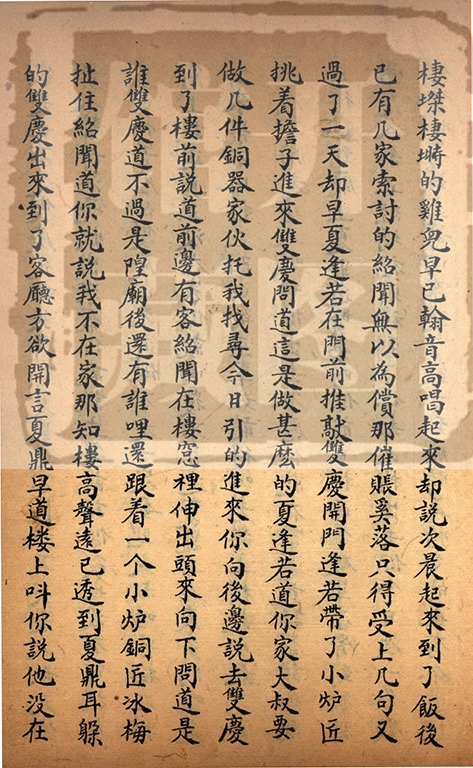 棲桀棲塒的雞兒早已翰音高唱起來却説次晨起來到了飯後
已有几家索討的紹聞無以為償那催賬奚落只得受上几句又
過了一天却早夏逢若在門前推敲雙慶開門逢若帶了小炉匠
挑着擔子進來雙慶問道這是做甚麽的夏逢若道你家大叔要
做几件銅器家伙托我找尋今日引的進來你向後邊説去雙慶
到了樓前説道前邊有客紹聞在樓窓裡伸出頭來向下問道是
誰雙慶道不過是隍廟後還有誰哩還跟着一个小炉銅匠冰梅
扯住紹聞道你就説我不在家那知樓高聲遠已透到夏鼎耳躲
的雙慶出來到了客廳方欲開言夏鼎早道楼上呌你説他没在